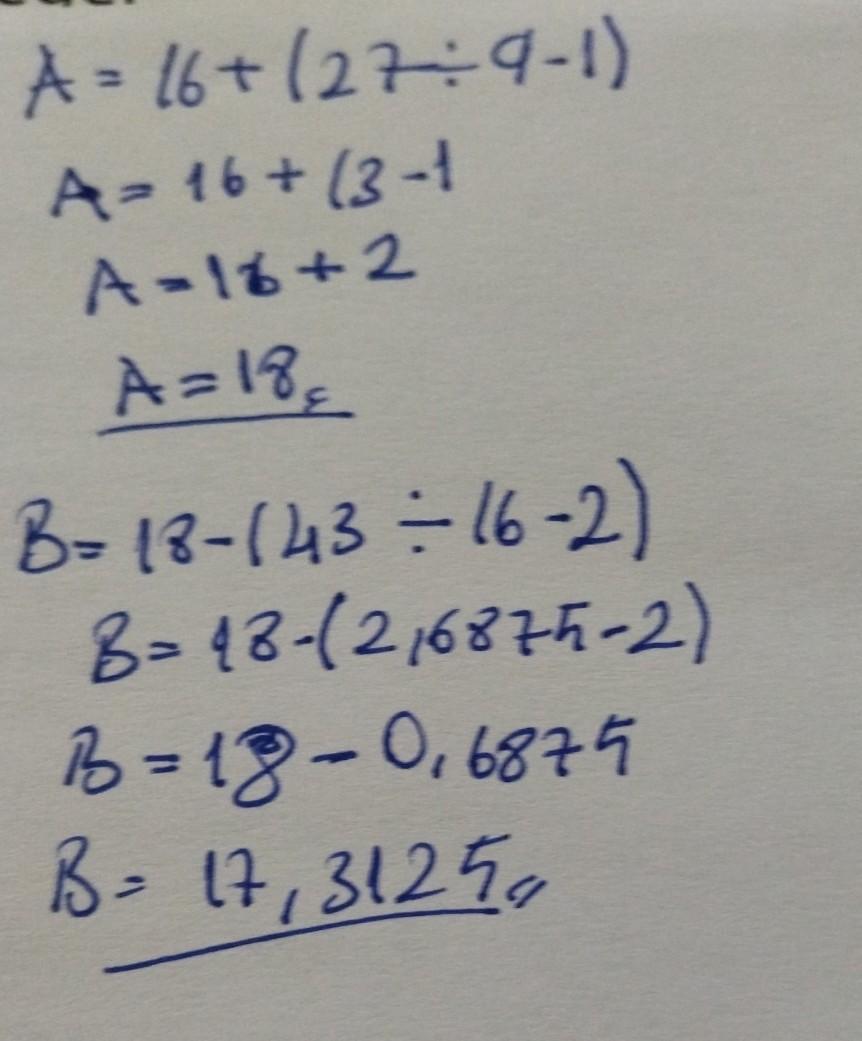 A = 16 + (27 ÷ 9 - 1)
A = 16 + (3 - 1
A = 16 + 2
A = 18
B = 18 - (43 ÷ 16 - 2)
B = 18 - (2,6875 - 2)
B = 18 - 0,6875
B = 17,3125